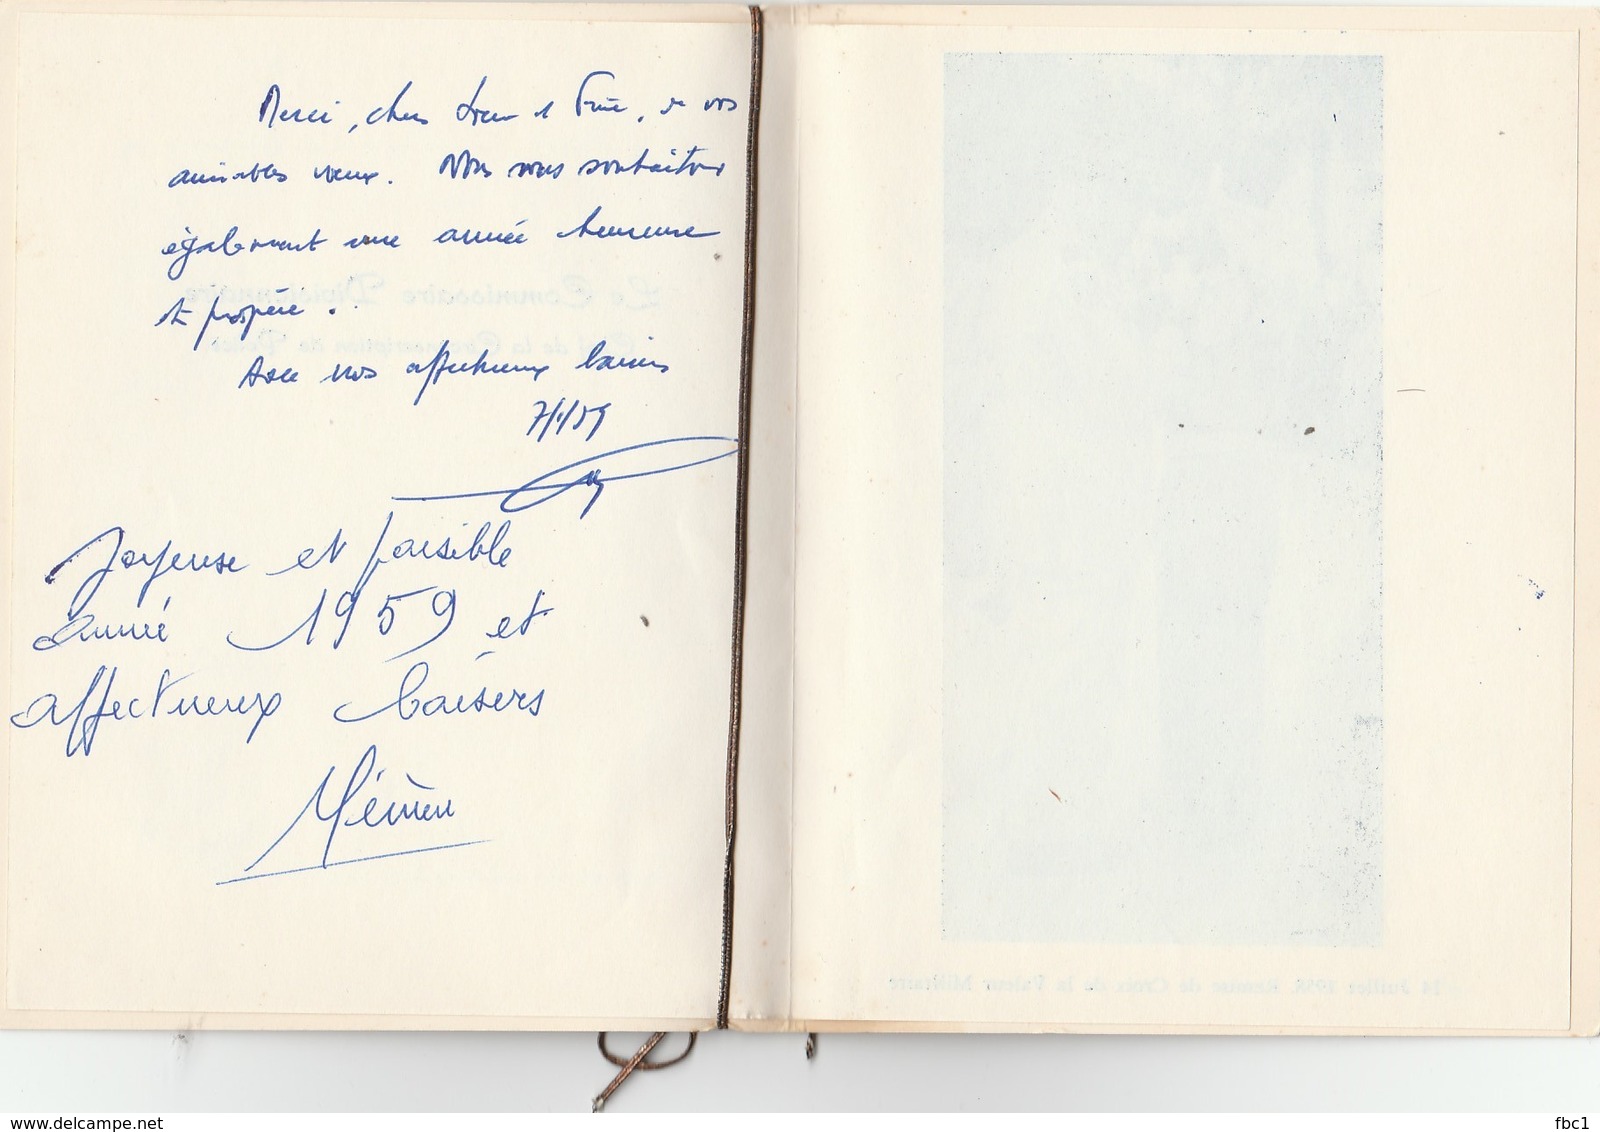 Merci, chers et , de vos
aimables vœux. Nous vous souhaitons
également une année heureuse
et prospère.
Avec nos affectueux baisers
7/1/59
Joyeuse et paisible
année 1959 et
affectueux baisers
Le Commissaire Divisionnaire
Chef de la Circonscription de Police
14 Juillet 1958. Remise de Croix de la Valeur Militaire
www.delcampe.net
fbc1